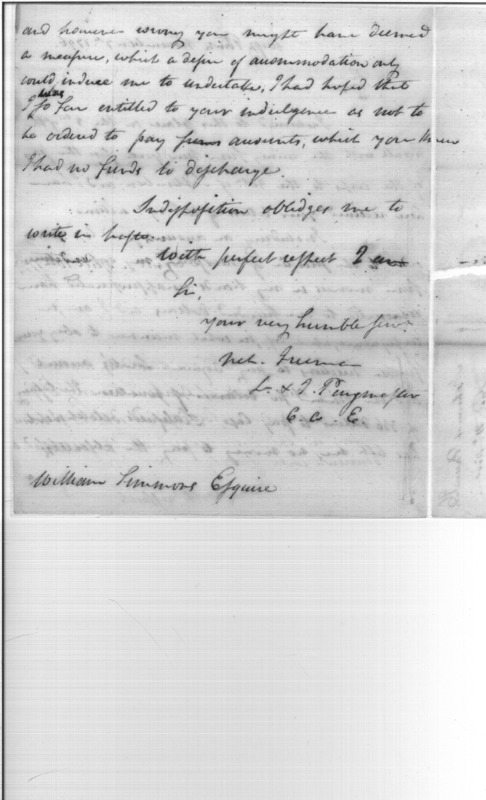 and however wrong you might have deemed
a measure, which a desire of accommodation only
could induce me to undertake, I had hoped that
I was so far entitled to your indulgence as not to
be ordered to pay accounts, which you knew
I had no funds to discharge.
Indisposition obliges me to
write in haste.
With perfect respect I am
Sir,
your very humble Servt
Lt & J. Paymaster
C A E.
William Simmons Esquire